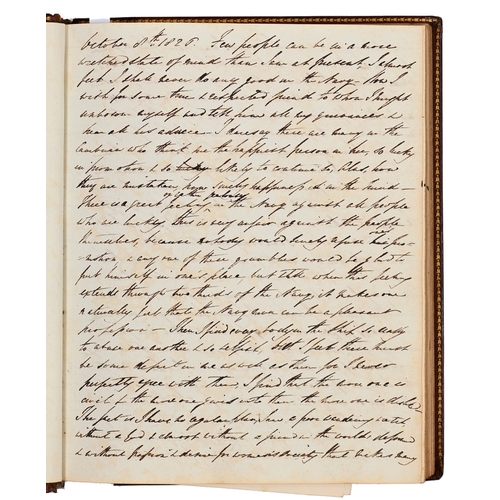 October 8th 1826. Few people can be in a more
wretched state of mind than I am at present. I almost
feel I shall never do any good in the Navy. How I
wish for some true & respected friend to whom I might
unbosom myself and tell him all my grievances &
hear all his advice. I daresay there are many in the
who think me the happiest person in her, so lucky
in promotion & so likely to continue so, Alas, how
they are mistaken, surely happiness is in the mind —
There is a great feeling in the Navy against all people
who are lucky, this is very unfair against the people
themselves, because nobody would surely refuse his pro-
motion, & any one of these grumblers would be glad to
put himself in one's place but still when this feeling
extends through two thirds of the Navy, it makes one
naturally feel that the Navy never can be a pleasant
profession — Then I find every body in the Ship so ready
to abuse one another & so selfish, still I feel there must
be some defect in me as well as them for I never
perfectly agree with them, I find that the more one is
civil the more one gives into them the more one is
The fact is I have no regular plan, I am a poor wandering
without a God & almost without a friend in the world,
& without profession & desire for women's society that makes many